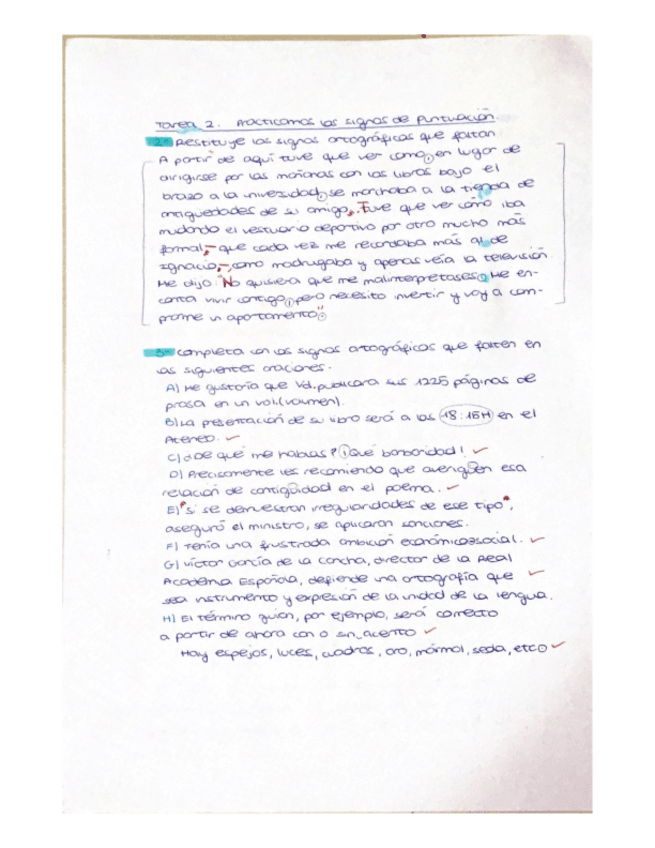 Tarea 2. Practicamos los signos de puntuación.
2º Restituye los signos ortográficos que faltan
A partir de aquí tuve que ver como, en lugar de
dirigirse por las mañanas con los libros bajo el
brazo a la universidad, se marchaba a la tienda de
antiguedades de su amigo. Tuve que ver cómo iba
mudando el vestuario deportivo por otro mucho más
formal, que cada vez me recordaba más al de
Ignacio, como madrugaba y apenas veía la televisión
Me dijo: No quisiera que me malinterpretases. Me en-
canta vivir contigo, pero necesito invertir y voy a com-
prame un apartamento".
3º Completa con los signos ortográficos que falten en
las siguientes oraciones.
A) Me gustaría que Vd. publicara sus 1225 páginas de
prosa en un vol. (volumen).
B) La presentación de su libro será a las 18:15H en el
Ateneo.
C) ¿De qué me hablas? ¡Qué barbaridad!
D) Precisamente les recomiendo que averigüen esa
relación de contigüidad en el poema.
E) "Si se demuestran irregularidades de ese tipo",
aseguró el ministro, se aplicaran sanciones.
F) Tenía una frustrada ambición económico-social.
G) Víctor García de la Concha, director de la Real
Academia Española, defiende una ortografía que
sea instrumento y expresión de la unidad de la lengua.
H) El término guion, por ejemplo, será correcto
a partir de ahora con o sin acento
Hay espejos, luces, cuadros, oro, mármol, seda, etc.